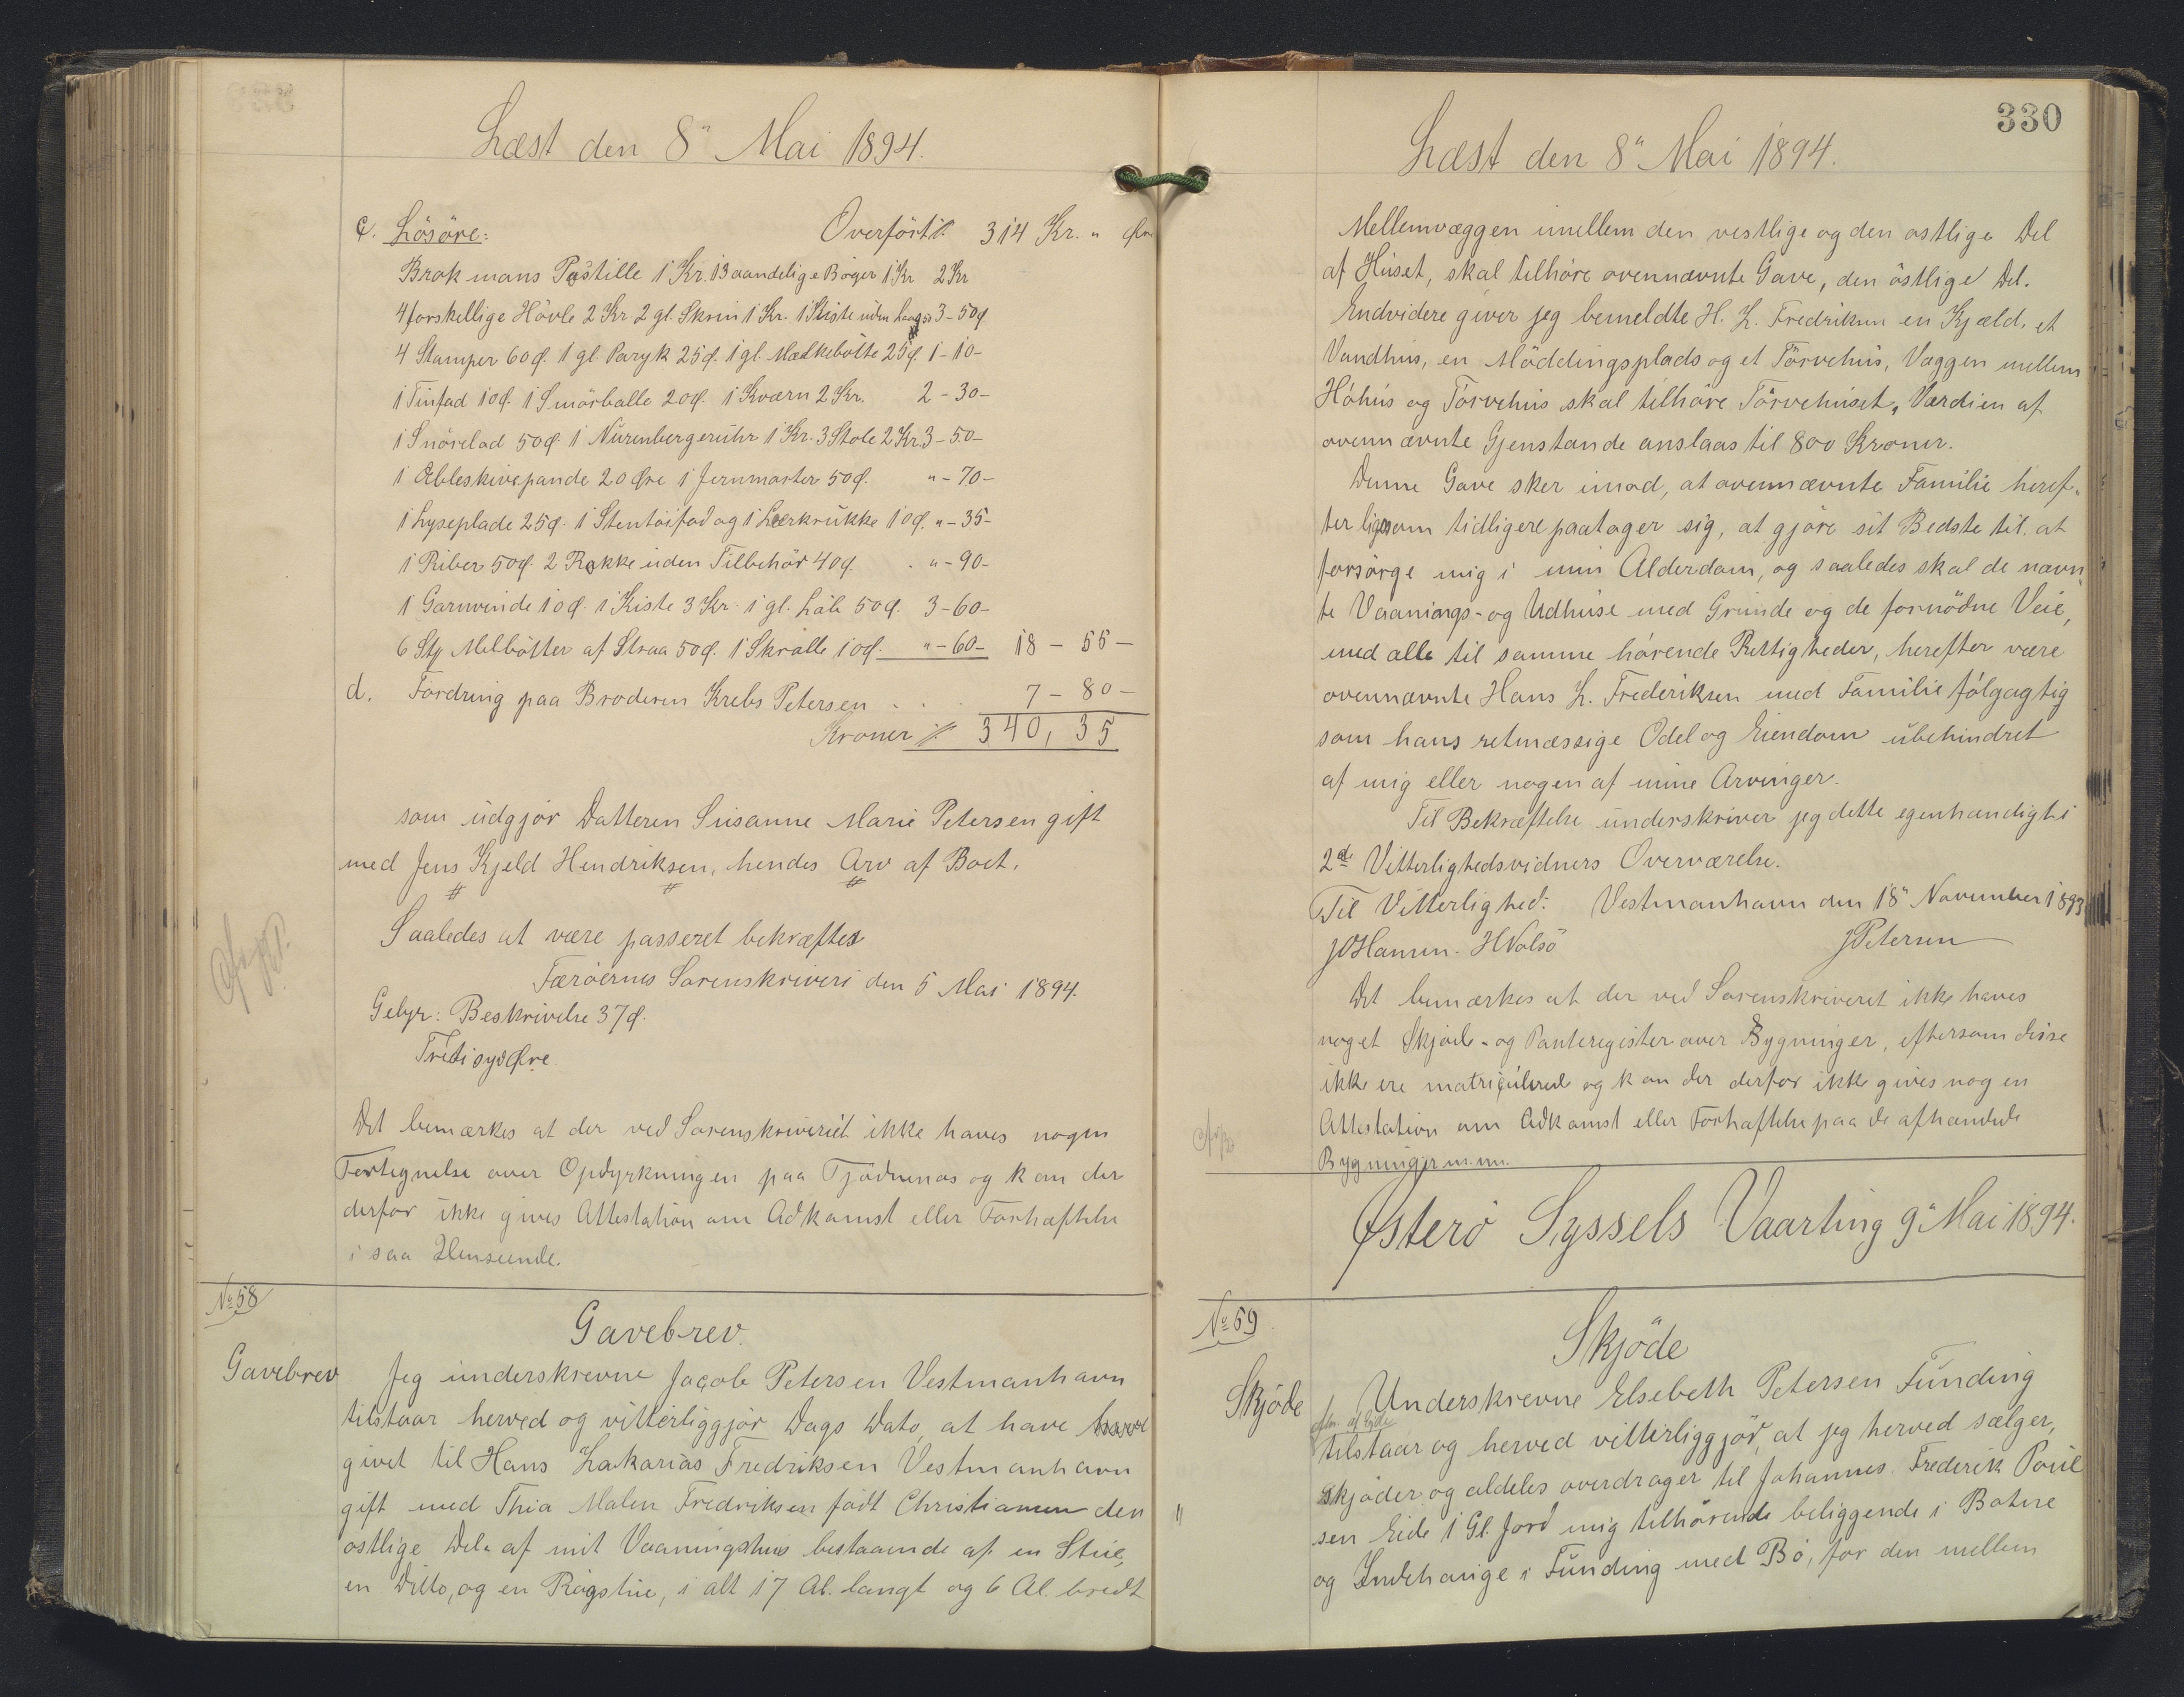 Læst den 8" Mai 1894.
c. Lösöre: Overfört ⁒ 314 Kr. " Øre
Brokmans Postille 1 Kr. 13 aandelige Böger 1 Kr 2 Kr
4 forskellige Hövle 2 Kr 2 gl. Skrin 1 Kr. 1 Kiste uden 3-50ø
4 Stamper 60ø. 1 gl. Paryk 25ø. 1 gl. Mælkebötte 25ø 1-10-
1 Tinfad 10ø. 1 Smörballe 20ø. 1 Kværn 2 Kr. 2-30-
1 Snörelad 50ø. 1 Nürenbergeruhr 1 Kr. 3 Stole 2 Kr. 3-50-
1 Æbleskivepande 20 Øre 1 Jernmorter 50ø. "-70-
1 Lyseplade 25ø. 1 Stentöifad og 1 Leerkrukke 10ø. "-35-
1 Riber 50ø. 2 Rokke uden Tilbehör 40ø. "-90-
1 Garnvinde 10ø. 1 Kiste 3 Kr. 1 gl. Löb 50ø. 3-60-
6 Stg Melbötter af Straa 50ø. 1 Skraale 10ø. "-60- 18 - 55 -
d. Fordring paa Broderen Krebs Petersen . . . 7 - 80 -
Kroner ⁒ 340,35
som udgjör Datteren Susanne Marie Petersen gift
med Jens Kjeld Hendriksen, hendes Arv af Boet.
Saaledes at være passeret bekræftes
Færöernes Sorenskriveri den 5 Mai 1894.
Gebyr: Beskrivelse 37ø.
Tretisyv Øre
Det bemærkes at der ved Sorenskriveriet ikke haves nogen
Fortegnelse over Opdyrkningen paa Tjödnenas og kan der
derfor ikke gives Attestation om Adkomst eller Forhæftelse
i saa Henseende.
No 58
Gavebrev.
Gavebrev Jeg underskrevne Jacob Petersen Vestmanhavn
tilstaar herved og vitterliggjör Dags Dato, at have
givet til Hans Zakarias Fredriksen Vestmanhavn
gift med Thia Malen Fredriksen födt Christiansen den
östlige Del af mit Vaaningshus bestaaende af en Stue,
en Ditto, og en Rögstue, i alt 17 Al. langt og 6 Al. bredt
330
Læst den 8" Mai 1894.
Mellemvæggen imellem den vestlige og den östlige Del
af Huset, skal tilhöre ovennævnte Gave, den östlige Del.
Endvidere giver jeg bemeldte H. Z. Fredriksen en Kjæld, et
Vandhus, en Möddingsplads og et Törvehus, Væggen mellem
Höhus og Törvehus skal tilhöre Törvehuset, Værdien af
ovennævnte Gjenstande anslaas til 800 Kroner.
Denne Gave sker imod, at ovennævnte Familie heref-
ter ligesom tidligere paatager sig, at gjöre sit Bedste til at
forsörge mig i min Alderdom, og saaledes skal de nævn
te Vaanings- og Udhuse med Grunde og de fornödne Veie,
med alle til samme hörende Rettigheder, herefter være
ovennævnte Hans Z. Frederiksen med Familie fölgagtig
som hans retmæssige Odel og Eiendom ubehindret
af mig eller nogen af mine Arvinger.
Til Bekræftelse underskriver jeg dette egenhændigt i
2de Vitterlighedsvidners Overværelse.
Til Vitterlighed: Vestmanhavn den 18" November 1893
JOHansen. HNolsö JPetersen
Det bemærkes at der ved Sorenskriveriet ikke haves
noget Skjöde- og Panteregister over Bygninger, eftersom disse
ikke ere matriculered og kan der derfor ikke gives nogen
Attestation om Adkomst eller Forhæftelse paa de afhændede
Bygninger m.m.
Østerö Syssels Vaarting 9" Mai 1894.
No 59
Skjöde
Skjöde Underskrevne Elsebeth Petersen Funding
tilstaar og herved vitterliggjör, at jeg herved sælger,
skjöder og aldeles overdrager til Johannes Frederik Poul
sen Eide 1 Gl. Jord mig tilhörende beliggende i Botne
og Indehauge i Funding med Bö, for den mellem